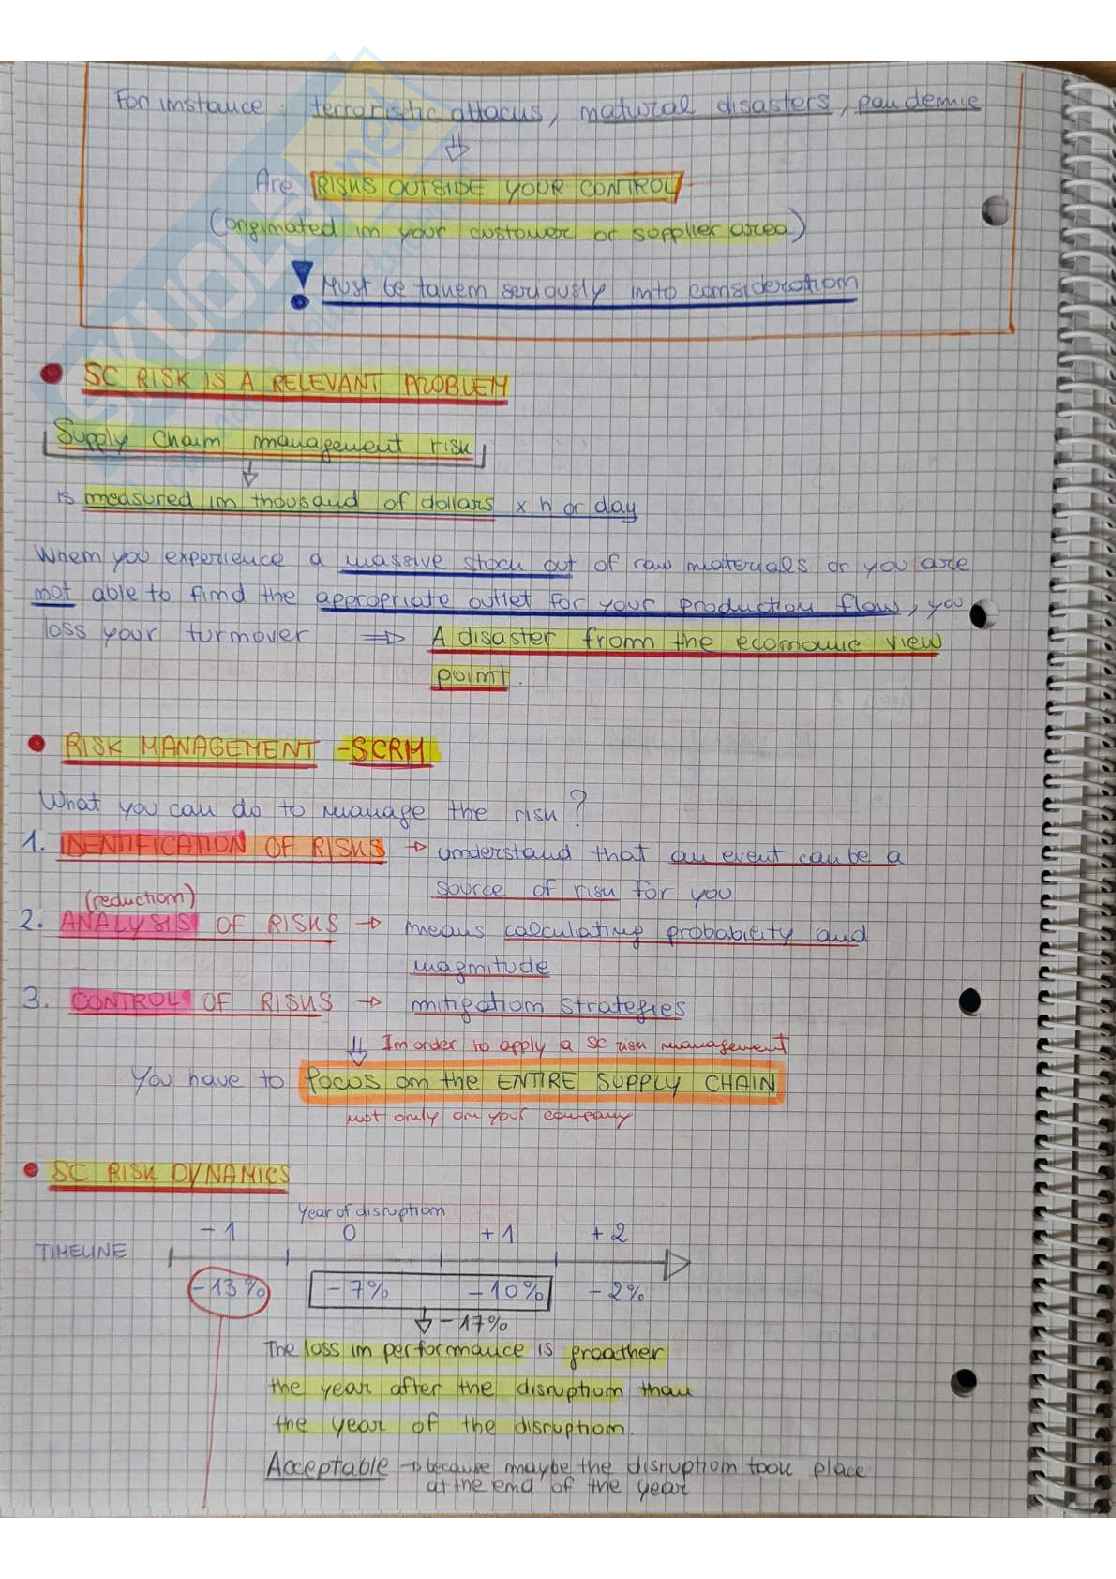 For instance : terroristic attacks, natural disasters, pandemic
⇓
Are RISKS OUTSIDE YOUR CONTROL
(originated in your customer or supplier area)
! Must be taken seriously into consideration
• SC RISK IS A RELEVANT PROBLEM
Supply chain management risk
↓
is measured in thousand of dollars x h or day
When you experience a massive stock out of raw materials or you are
not able to find the appropriate outlet for your production flow, you
loss your turnover ⇒ A disaster from the economic view
point.
• RISK MANAGEMENT - SCRM
What you can do to manage the risk?
1. IDENTIFICATION OF RISKS → understand that an event can be a
source of risk for you
(reduction)
2. ANALYSIS OF RISKS → means calculating probability and
magnitude
3. CONTROL OF RISKS → mitigation strategies
⇓ In order to apply a SC risk management
You have to focus on the ENTIRE SUPPLY CHAIN
not only on your company
• SC RISK DYNAMICS
Year of disruption
-1 0 +1 +2
TIMELINE
-13% -7% -10% -2%
↓ -17%
The loss in performance is greather
the year after the disruption than
the year of the disruption.
Acceptable → because maybe the disruption took place
at the end of the year